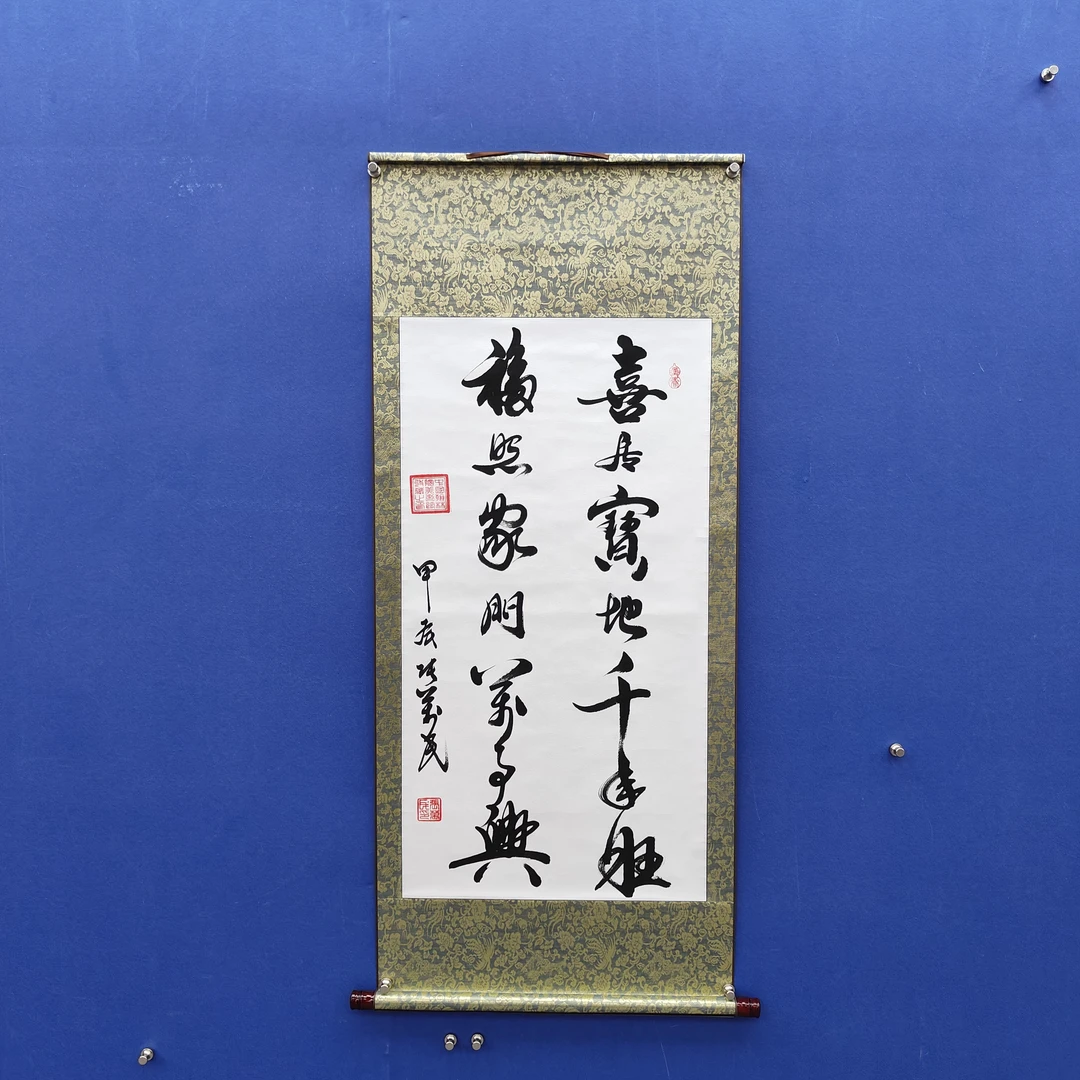 喜居寶地千年旺
福照家門萬事興
甲辰 萬民